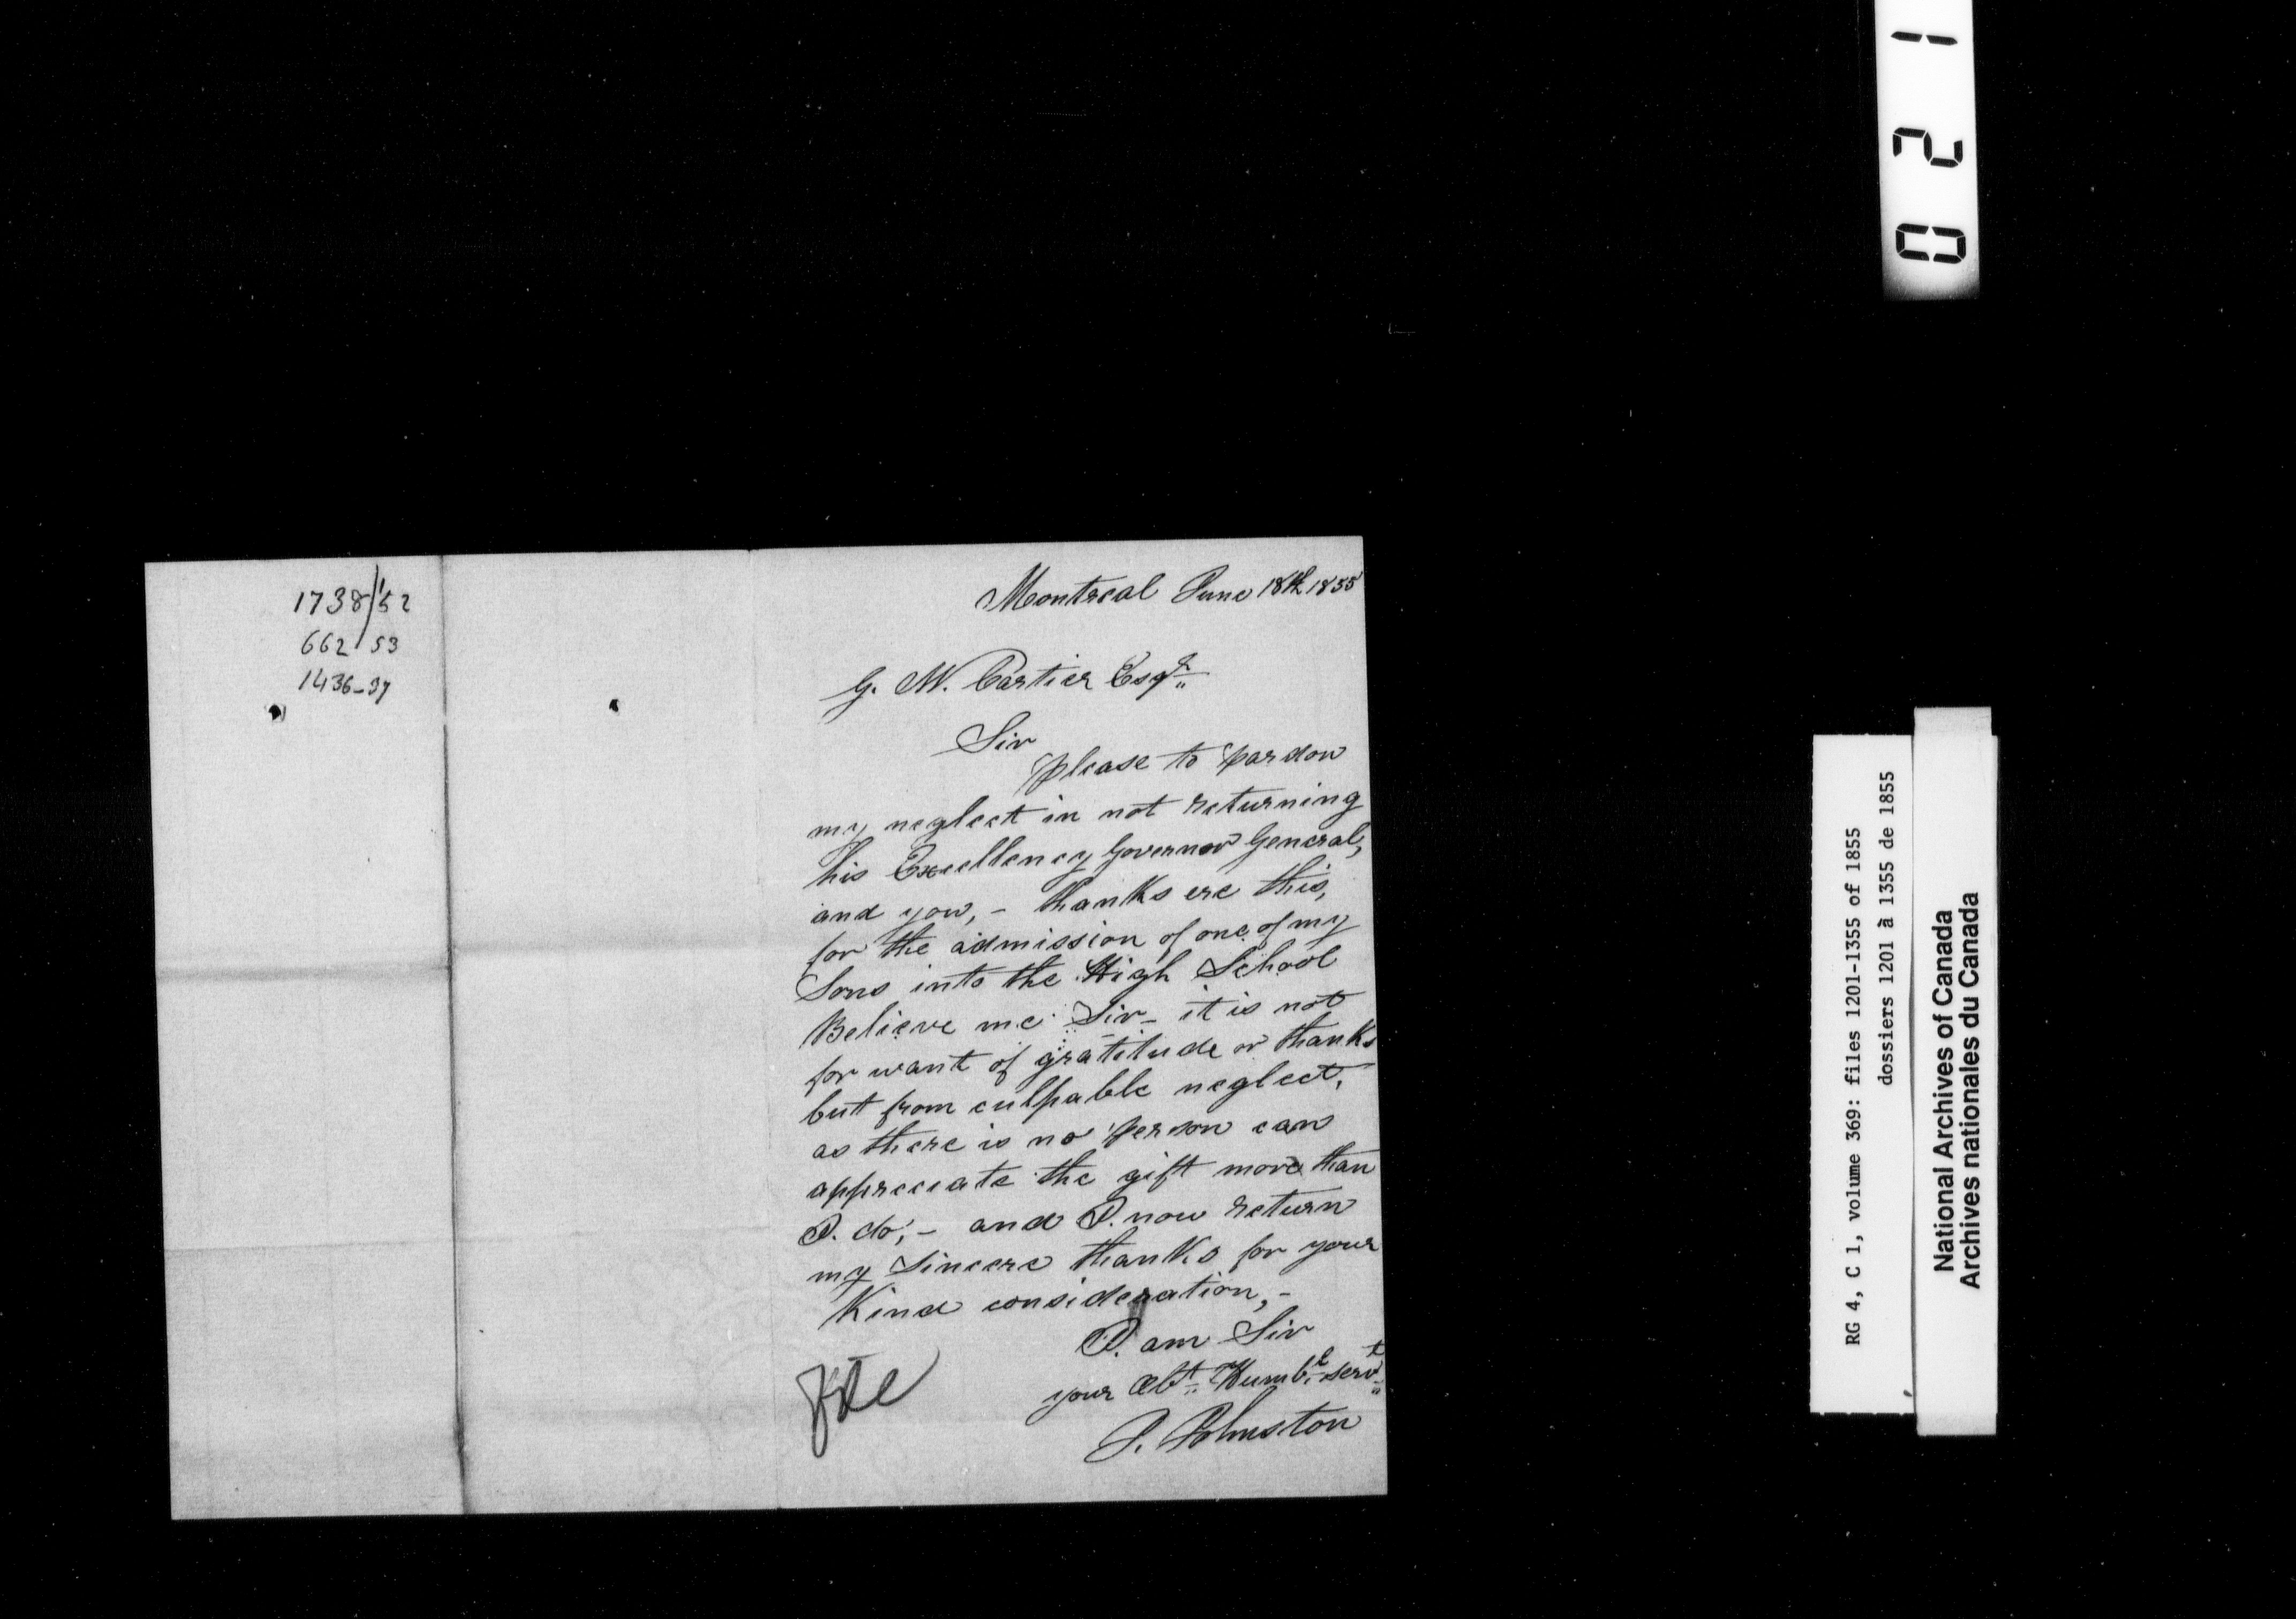 1738/52
662/53
1436-37
Montreal June 18th 1855
G. M. Cartier Esqr
Sir
please to pardon
my neglect in not returning
his Excellency Governor General,
and you, - thanks ere this,
for the admission of one of my
Sons into the High School
Believe me Sir - it is not
for want of gratitude or thanks
but from culpable neglect,
as there is no person can
appreciate the gift more than
I. do; - and I. now return
my Sincere thanks for your
Kind consideration, -
I. am Sir
your Obt Humble servt
J. Johnston
021
RG 4, C 1, volume 369: files 1201-1355 of 1855
dossiers 1201 à 1355 de 1855
National Archives of Canada
Archives nationales du Canada